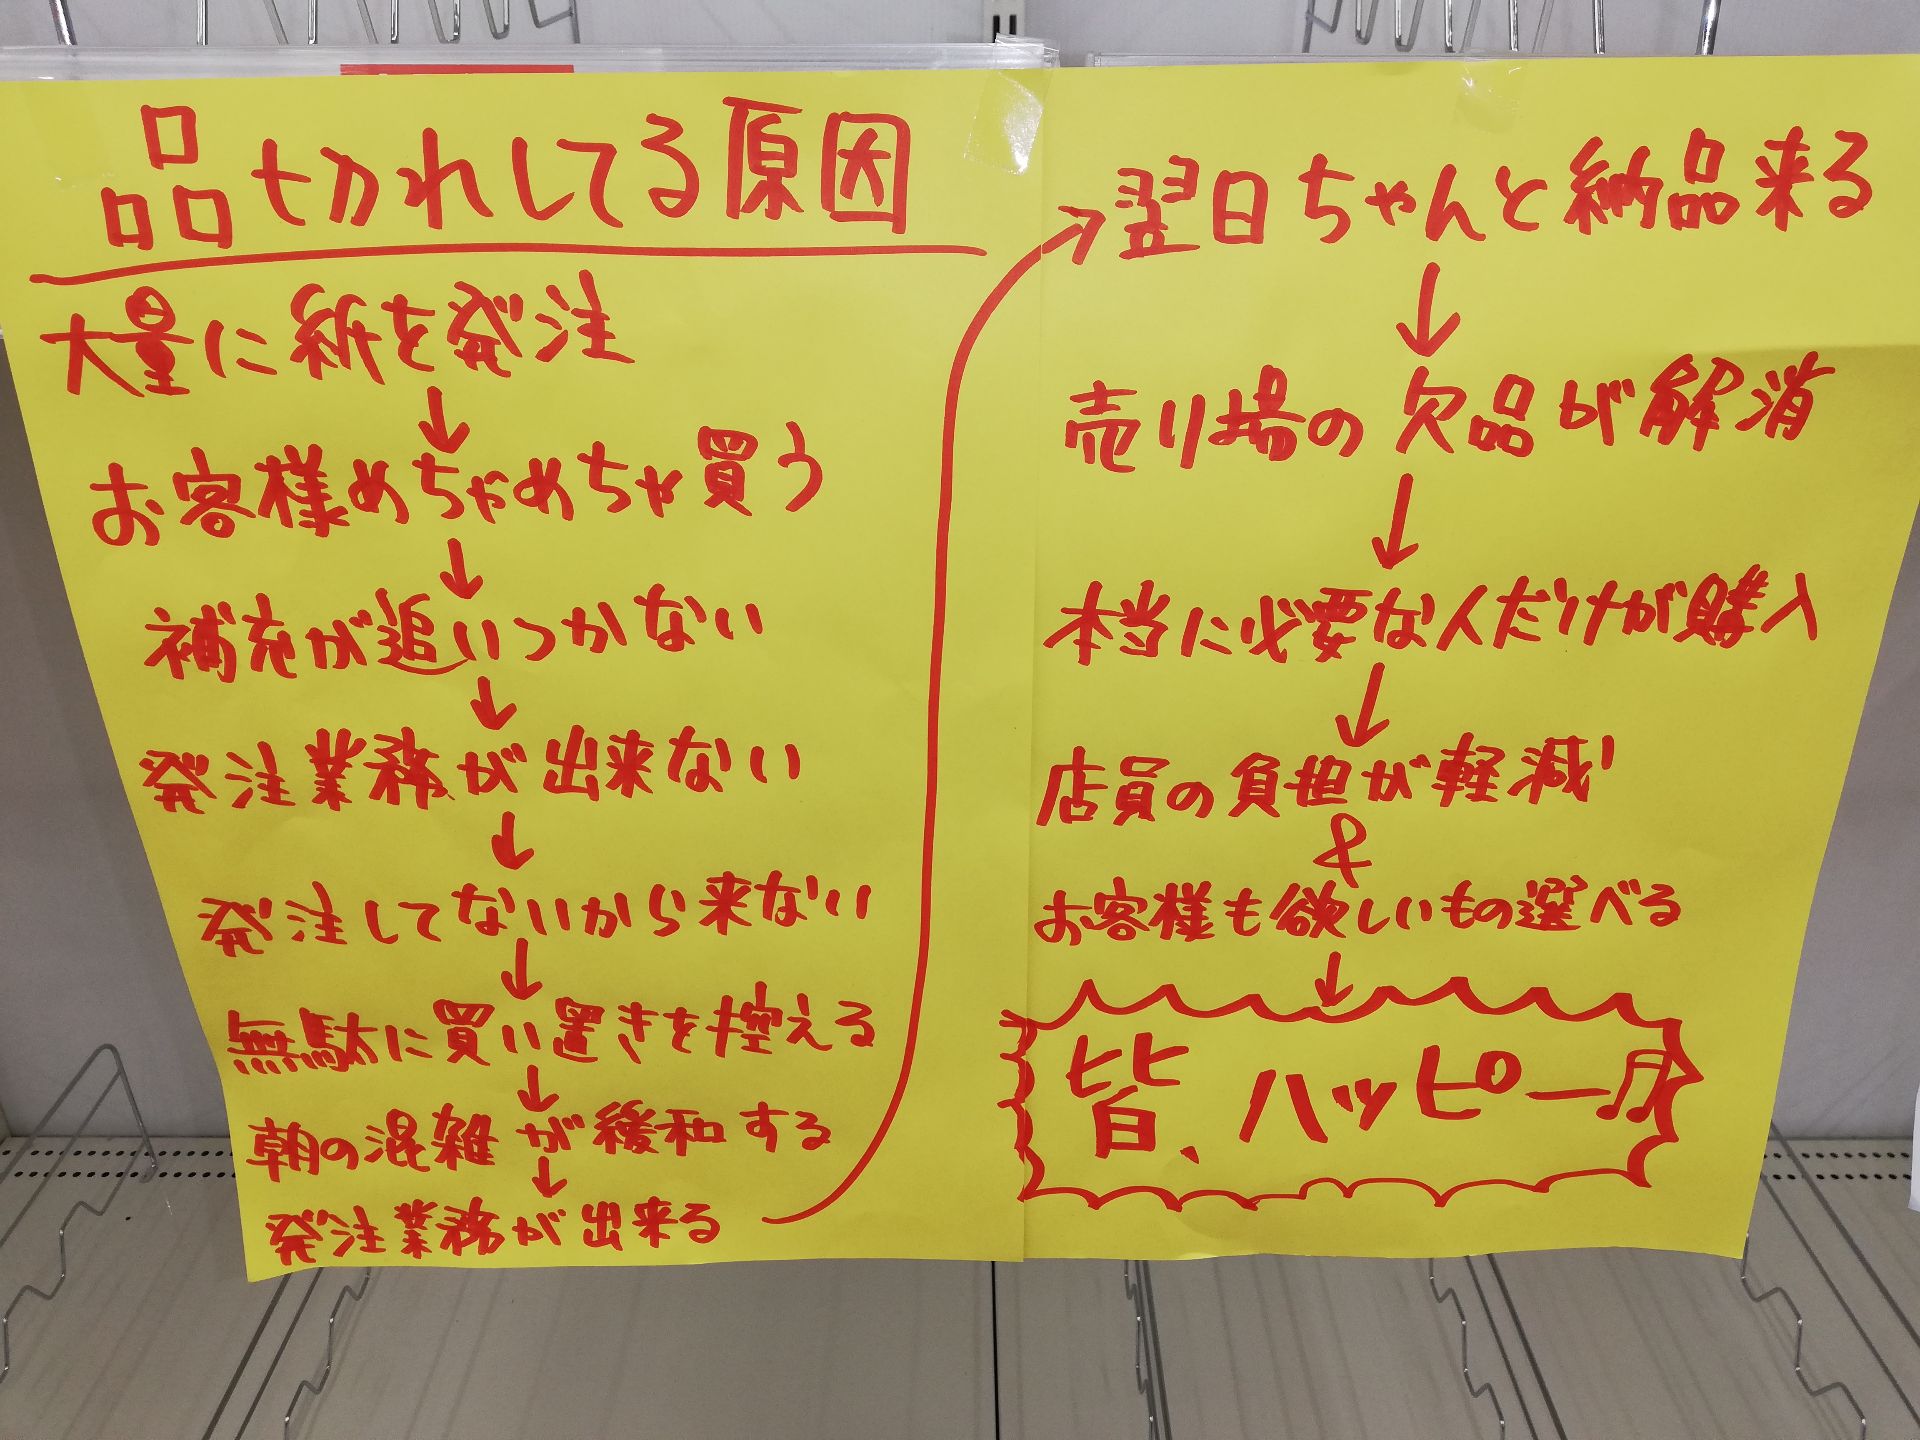 品切れしてる原因
大量に紙を発注
↓
お客様めちゃめちゃ買う
↓
補充が追いつかない
↓
発注業務が出来ない
↓
発注してないから来ない
↓
無駄に買い置きを控える
↓
朝の混雑が緩和する
↓
発注業務が出来る
→翌日ちゃんと納品来る
↓
売り場の欠品が解消
↓
本当に必要な人だけが購入
↓
店員の負担が軽減
&
お客様も欲しいもの選べる
↓
皆、ハッピー♬